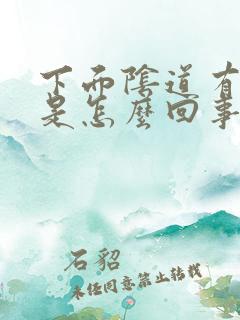 下面陰道有
是怎麼回事
石貂
未经同意禁止转载